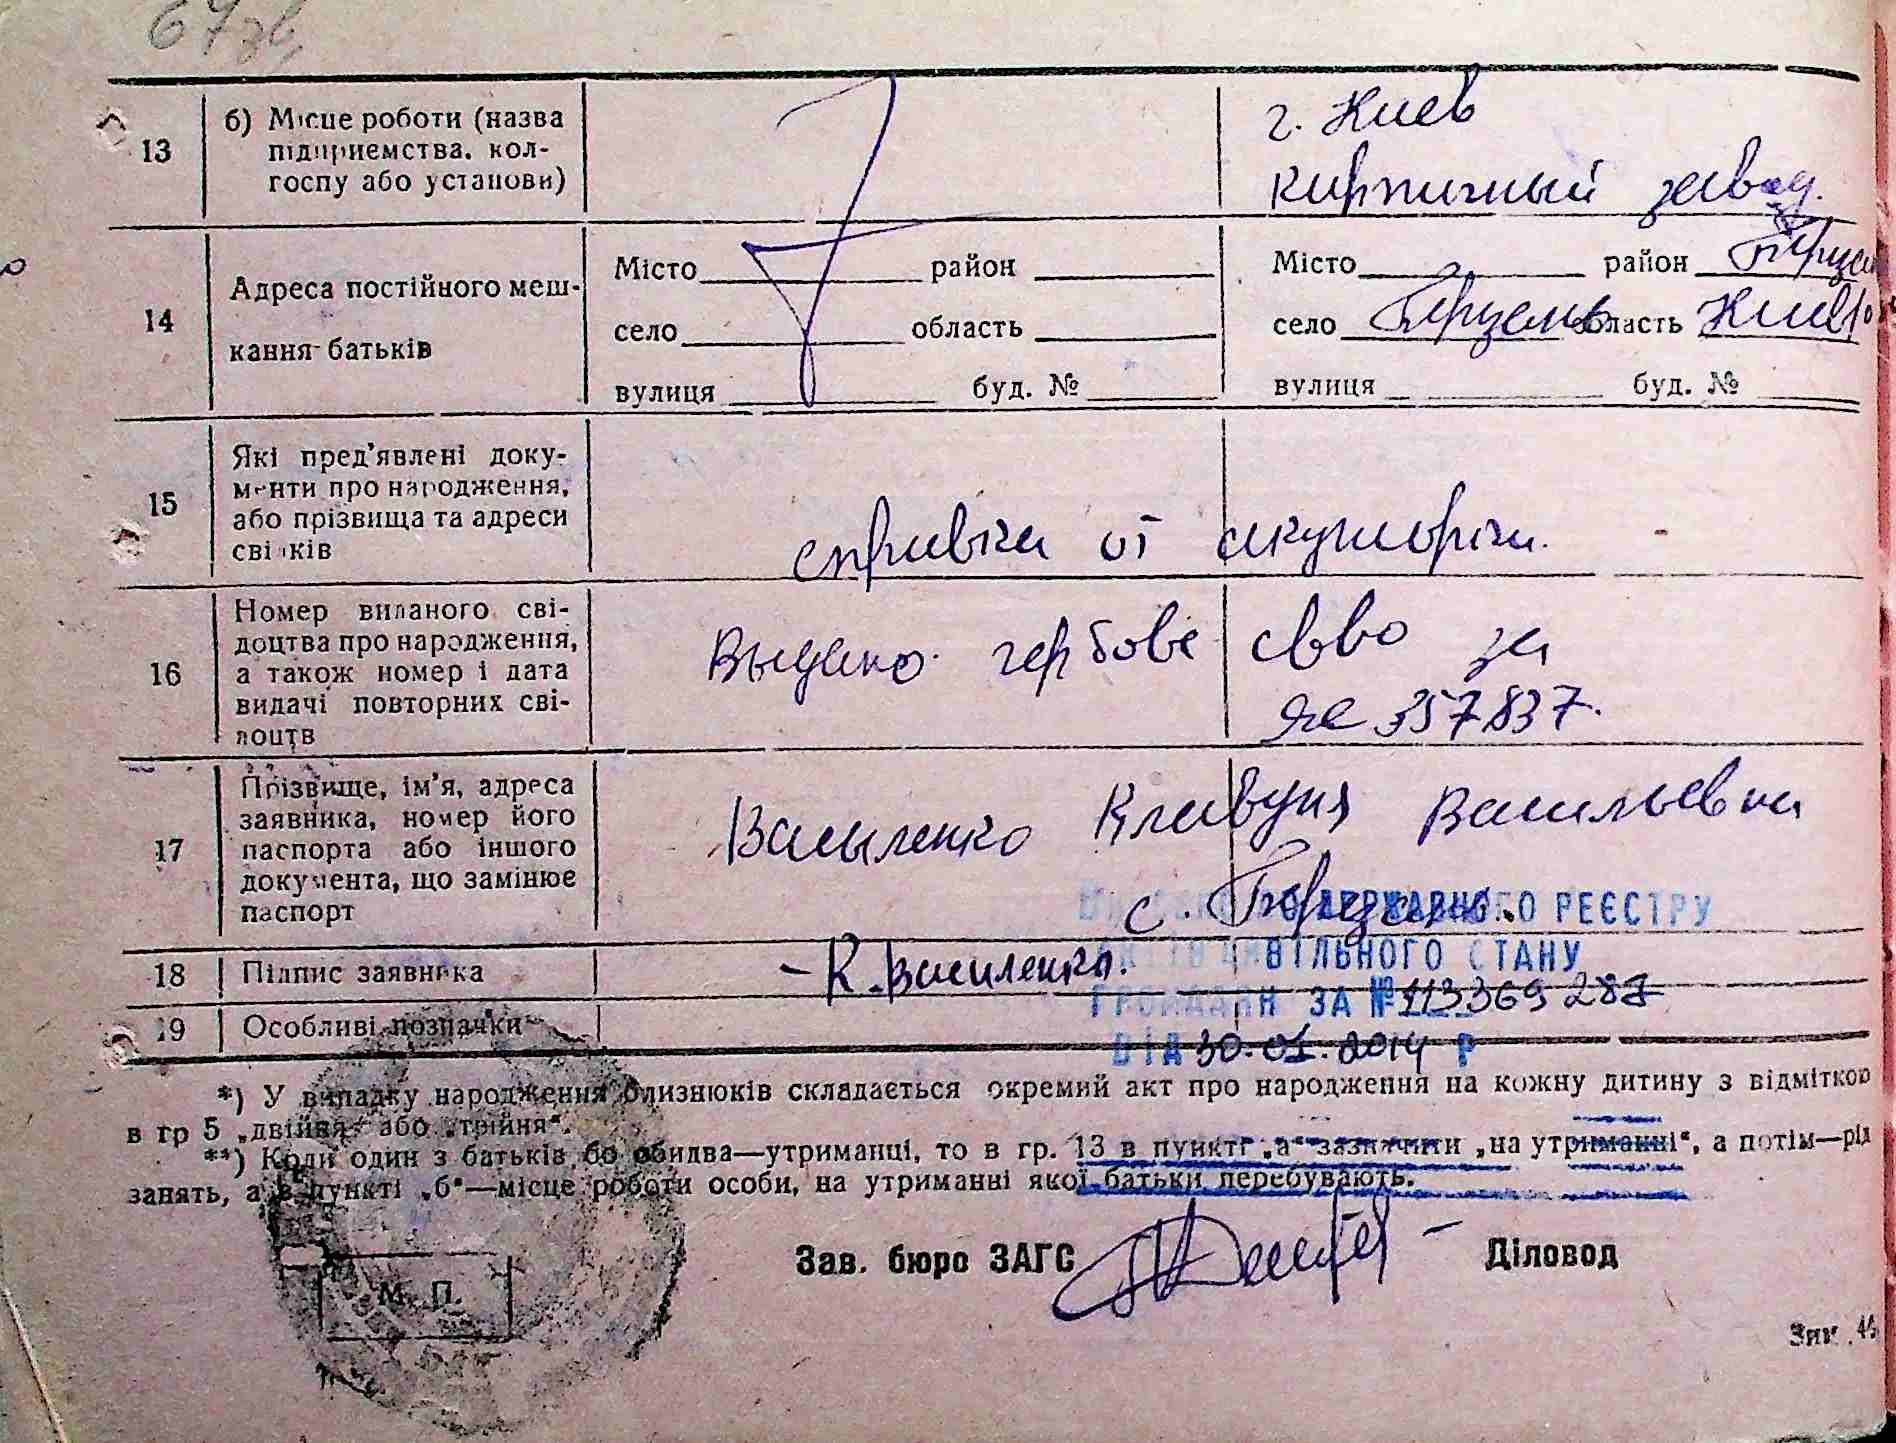 67 зв.
13 б) Місце роботи (назва г. Киев
підприємства, кол-
госпу або установи) кирпичный завод.
14 Адреса постійного меш- Місто район Місто район
кання батьків село область село область Киев
вулиця буд. № вулиця буд. №
15 Які пред'явлені доку-
менти про народження,
або прізвища та адреси
свідків справка от акушорки.
16 Номер виданого сві-
доцтва про народження, Выдано гербове св-во за
а також номер і дата
видачі повторних сві- ЯЕ 357837.
доцтв
17 Прізвище, ім'я, адреса
заявника, номер його Василенко Клавдия Васильевна
паспорта або іншого
документа, що замінює
паспорт с.
ДО ДЕРЖАВНОГО РЕЄСТРУ
18 Підпис заявника – К. Василенко.
АКТІВ ЦИВІЛЬНОГО СТАНУ
ГРОМАДЯН ЗА № 113369287
19 Особливі позначки
ВІД 30.01.2014 Р
*) У випадку народження близнюків складається окремий акт про народження на кожну дитину з відміткою
в гр 5 „двійня" або „трійня".
**) Коли один з батьків бо обидва—утриманці, то в гр. 13 в пункті „а" зазначити „на утриманні", а потім—рід
занять, а в пункті „б"—місце роботи особи, на утриманні якої батьки перебувають.
Зав. бюро ЗАГС Діловод
М. П.
Зак. 44